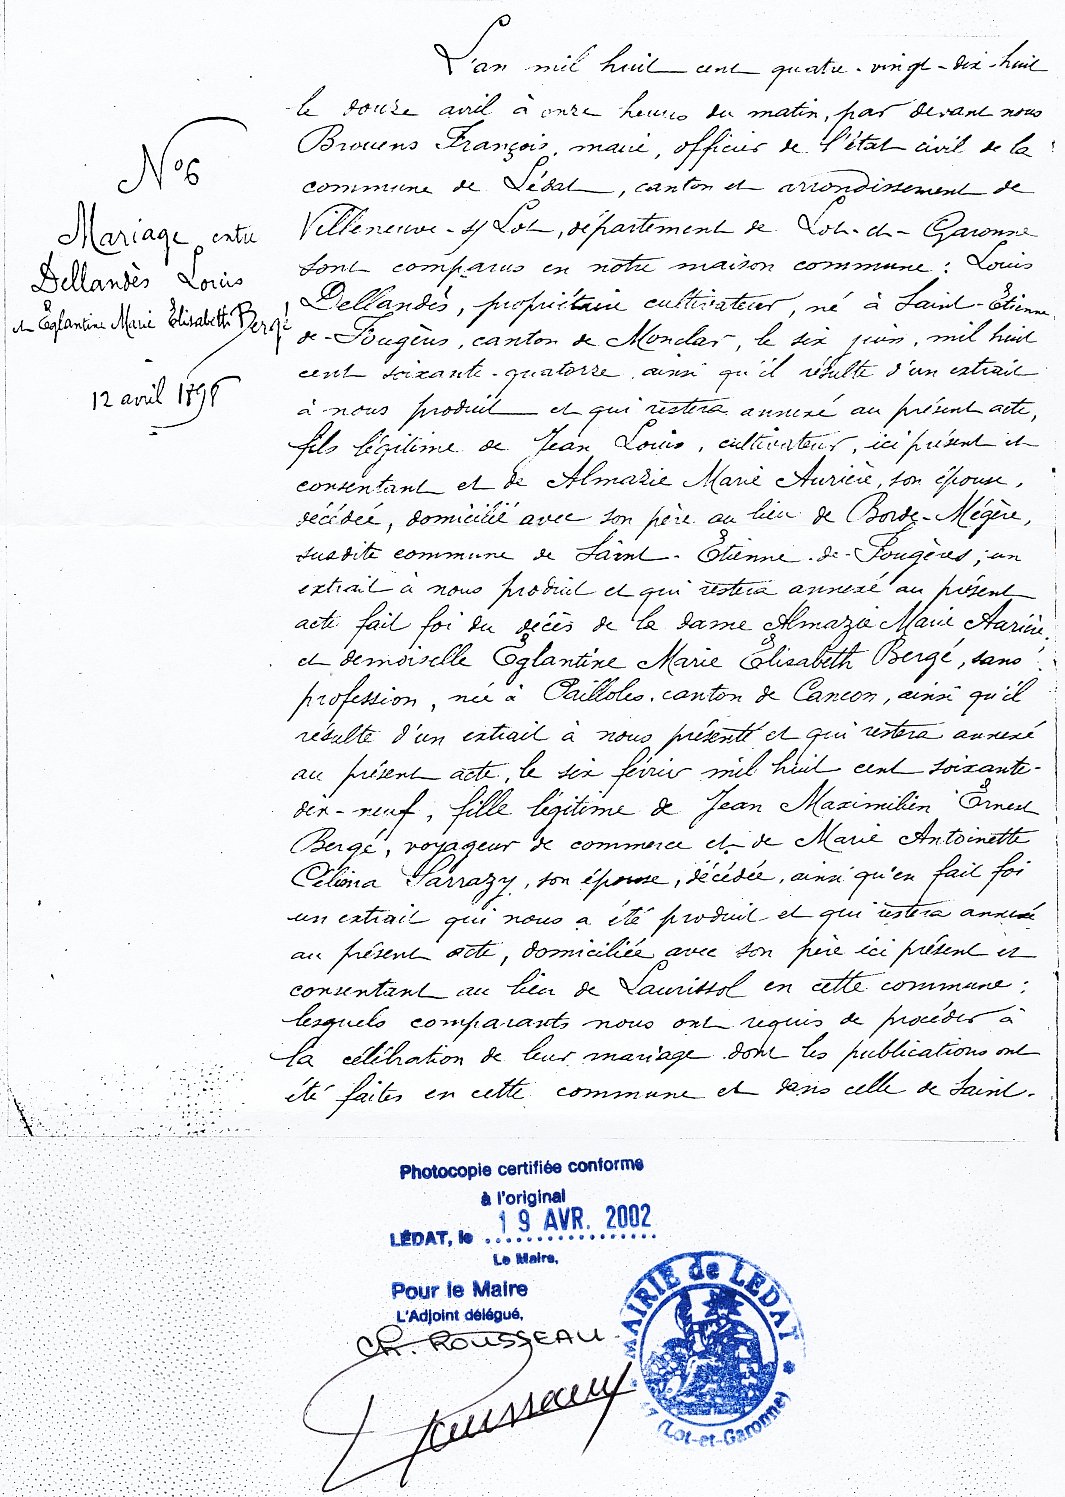 N° 6
Mariage entre
Dellandès Louis
et Églantine Marie Élisabeth Bergé
12 avril 1898
L'an mil huit cent quatre-vingt-dix-huit
le douze avril à onze heures du matin, par devant nous
Brouens François, maire, officier de l'état civil de la
commune de Lédat, canton et arrondissement de
Villeneuve-s/ Lot, département de Lot-et-Garonne
sont comparus en notre maison commune : Louis
Dellandès, propriétaire cultivateur, né à Saint-Étienne
de-Fougères, canton de Monclar, le six juin, mil huit
cent soixante-quatorze, ainsi qu'il résulte d'un extrait
à nous produit et qui restera annexé au présent acte,
fils légitime de Jean Louis, cultivateur, ici présent et
consentant et de Almazie Marie Aurière, son épouse,
décédée, domicilié avec son père au lieu de Borde-Mégère,
susdite commune de Saint-Étienne-de-Fougères ; un
extrait à nous produit et qui restera annexé au présent
acte fait foi du décès de la dame Almazie Marie Aurière,
et demoiselle Églantine Marie Élisabeth Bergé, sans
profession, née à Pailloles, canton de Cancon, ainsi qu'il
résulte d'un extrait à nous présenté et qui restera annexé
au présent acte, le six février mil huit cent soixante-
dix-neuf, fille légitime de Jean Maximilien Ernest
Bergé, voyageur de commerce et de Marie Antoinette
Célima Sarrazy, son épouse, décédée, ainsi qu'en fait foi
un extrait qui nous a été produit et qui restera annexé
au présent acte, domiciliée avec son père ici présent et
consentant au lieu de Laurissol en cette commune ;
lesquels comparants nous ont requis de procéder à
la célébration de leur mariage dont les publications ont
été faites en cette commune et dans celle de Saint-
Photocopie certifiée conforme
à l'original
LÉDAT, le 19 AVR. 2002
Le Maire,
Pour le Maire
L'Adjoint délégué,
CH. ROUSSEAU
Rousseau
MAIRIE de LEDAT
47 (Lot-et-Garonne)